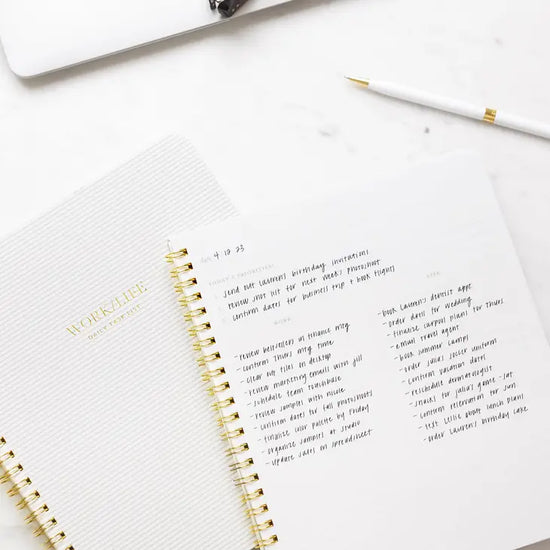 WORK/LIFE
DAILY TASK LIST
4 · 12 · 23
TODAY'S PRIORITIES
send out Lauren's birthday invitations
review shot list for next week's photoshoot
confirm dates for business trip + book flights
WORK
- review bestsellers in finance mtg
- confirm thurs mtg time
- clear out files on desktop
- review marketing emails with jill
- schedule team lunch
- review samples with nicole
- confirm dates for fall photoshoots
- finalize color palette by friday
- organize samples at studio
- update sales on spreadsheet
LIFE
- book Lauren's dentist appt
- order dress for wedding
- finalize carpool plans for thurs
- email travel agent
- book summer camps
- order julia's soccer uniform
- confirm vacation dates
- reschedule dermatologist
- snacks for julia's game - sat.
- confirm reservation for sun
- text Leslie about lunch plans
- order Lauren's birthday cake